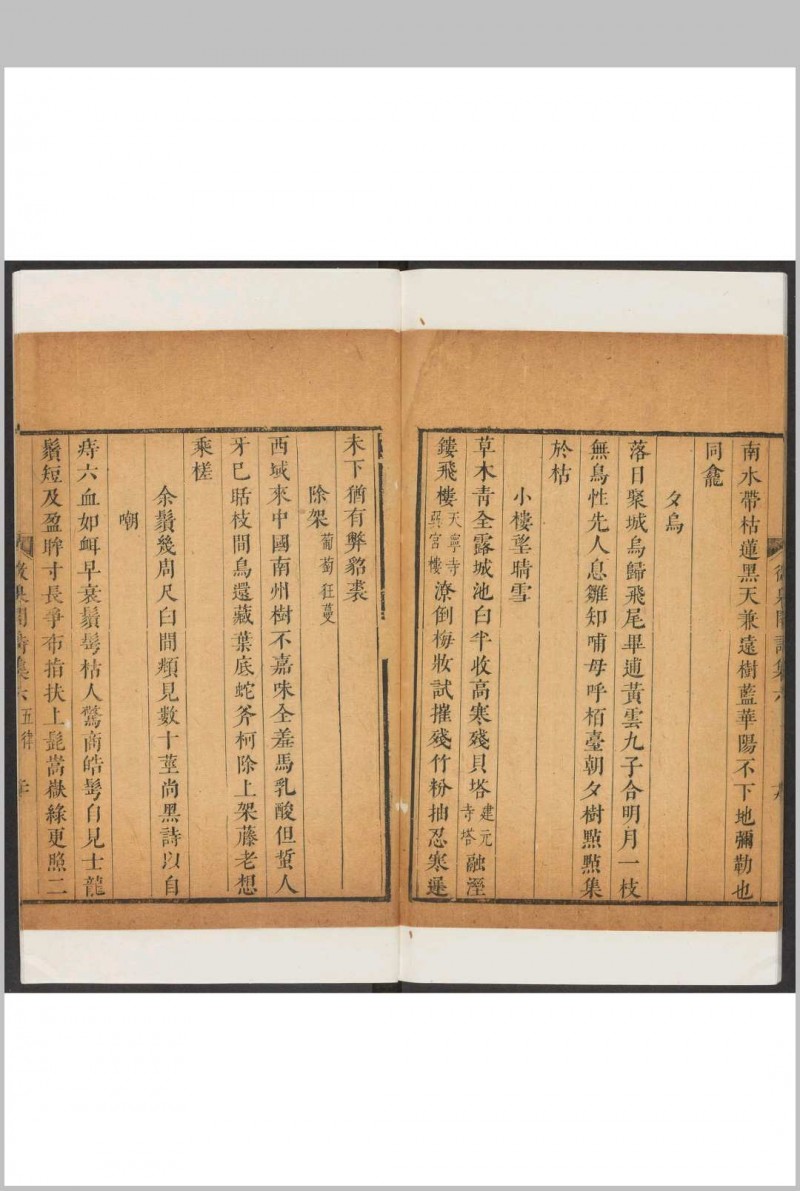 南水帶枯蓮黑天兼遠樹藍華陽不下地彌勒也
同龕
夕烏
落日聚城烏歸飛尾畢逋黃雲九子合明月一枝
無鳥性先人息雛知哺母呼栢臺朝夕樹點點集
於枯
小樓望晴雪
草木青全露城池白半收高寒殘貝塔建元寺塔融溼
鏤飛樓天寧寺巽宮樓潦倒梅妝試摧殘竹粉抽忍寒遲
未下猶有弊貂裘
除架葡萄狂蔓
西域來中國南州樹不嘉味全羞馬乳酸但蜇人
牙巳聒枝間鳥還藏葉底蛇斧柯除上架藤老想
乘槎
余鬚幾周尺白間頰見數十莖尚黑詩以自
嘲
痔六血如衈早衰鬚髩枯人驚商皓髩自見士龍
鬚短及盈眸寸長爭布指扶上髭嵩嶽綠更照二
集六 五律